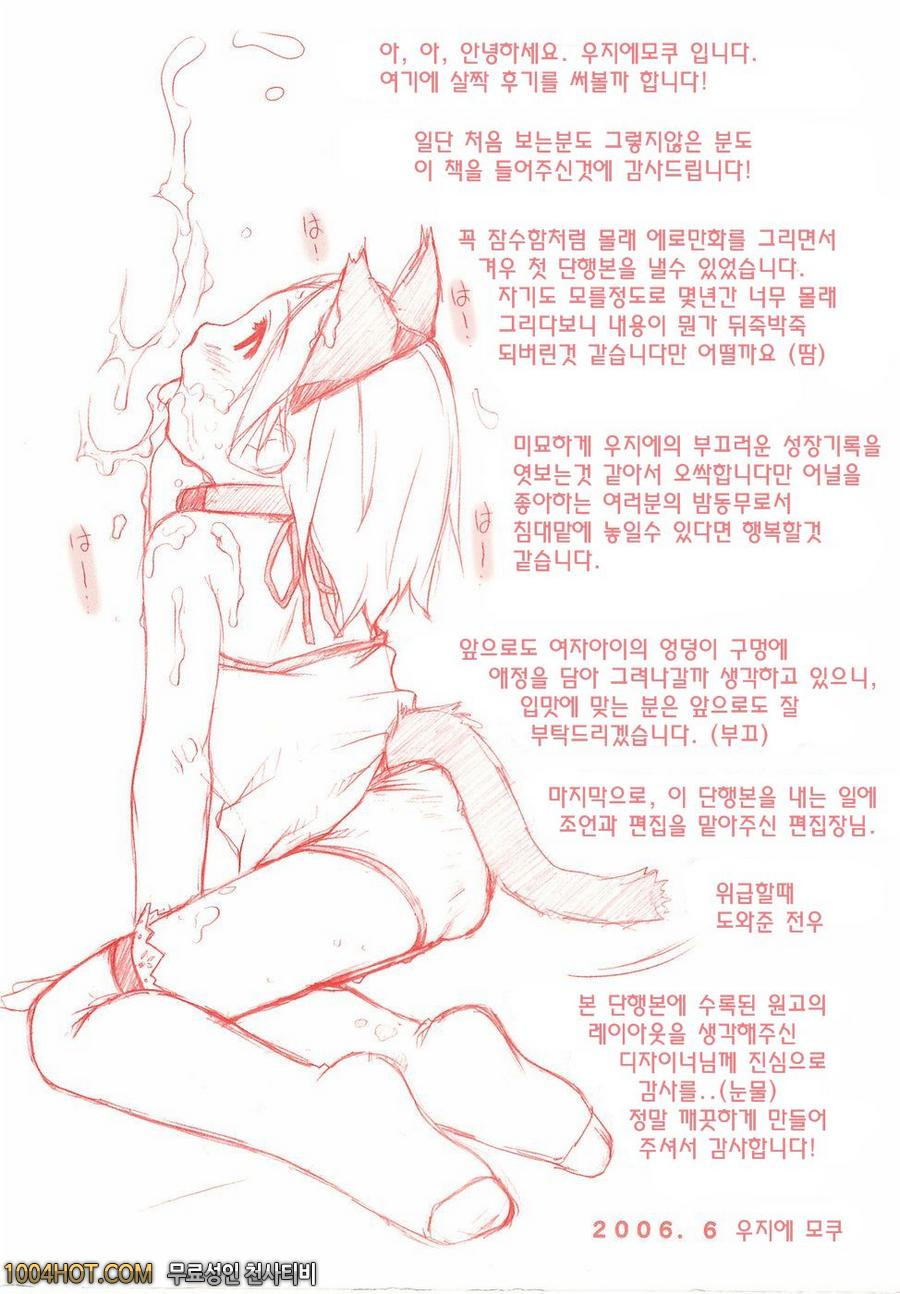 아, 아, 안녕하세요. 우지에모쿠 입니다.
여기에 살짝 후기를 써볼까 합니다!
일단 처음 보는분도 그렇지않은 분도
이 책을 들어주신것에 감사드립니다!
は―
꼭 잠수함처럼 몰래 에로만화를 그리면서
겨우 첫 단행본을 낼수 있었습니다.
は―
자기도 모를정도로 몇년간 너무 몰래
그리다보니 내용이 뭔가 뒤죽박죽
되버린것 같습니다만 어떨까요 (땀)
미묘하게 우지에의 부끄러운 성장기록을
엿보는것 같아서 오싹합니다만 어널을
좋아하는 여러분의 밤동무로서
침대맡에 놓일수 있다면 행복할것
같습니다.
は―
は―
앞으로도 여자아이의 엉덩이 구멍에
애정을 담아 그려나갈까 생각하고 있으니,
입맛에 맞는 분은 앞으로도 잘
부탁드리겠습니다. (부끄)
마지막으로, 이 단행본을 내는 일에
조언과 편집을 맡아주신 편집장님.
위급할때
도와준 전우
본 단행본에 수록된 원고의
레이아웃을 생각해주신
디자이너님께 진심으로
감사를..(눈물)
정말 깨끗하게 만들어
주셔서 감사합니다!
2006. 6 우지에 모쿠
1004HOT.COM 무료성인 천사티비